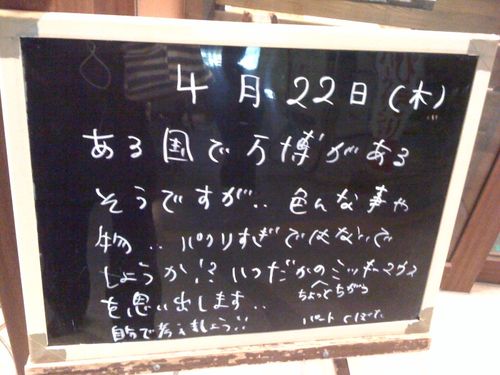 4月22日(木)
ある国で万博がある
そうですが.. 色んな事や
物.. パクリすぎではないで
しょうか!? いつだかのミッキーマウス
ちょっとちがう
を思い出します..
自分で考えましょう!!
パート